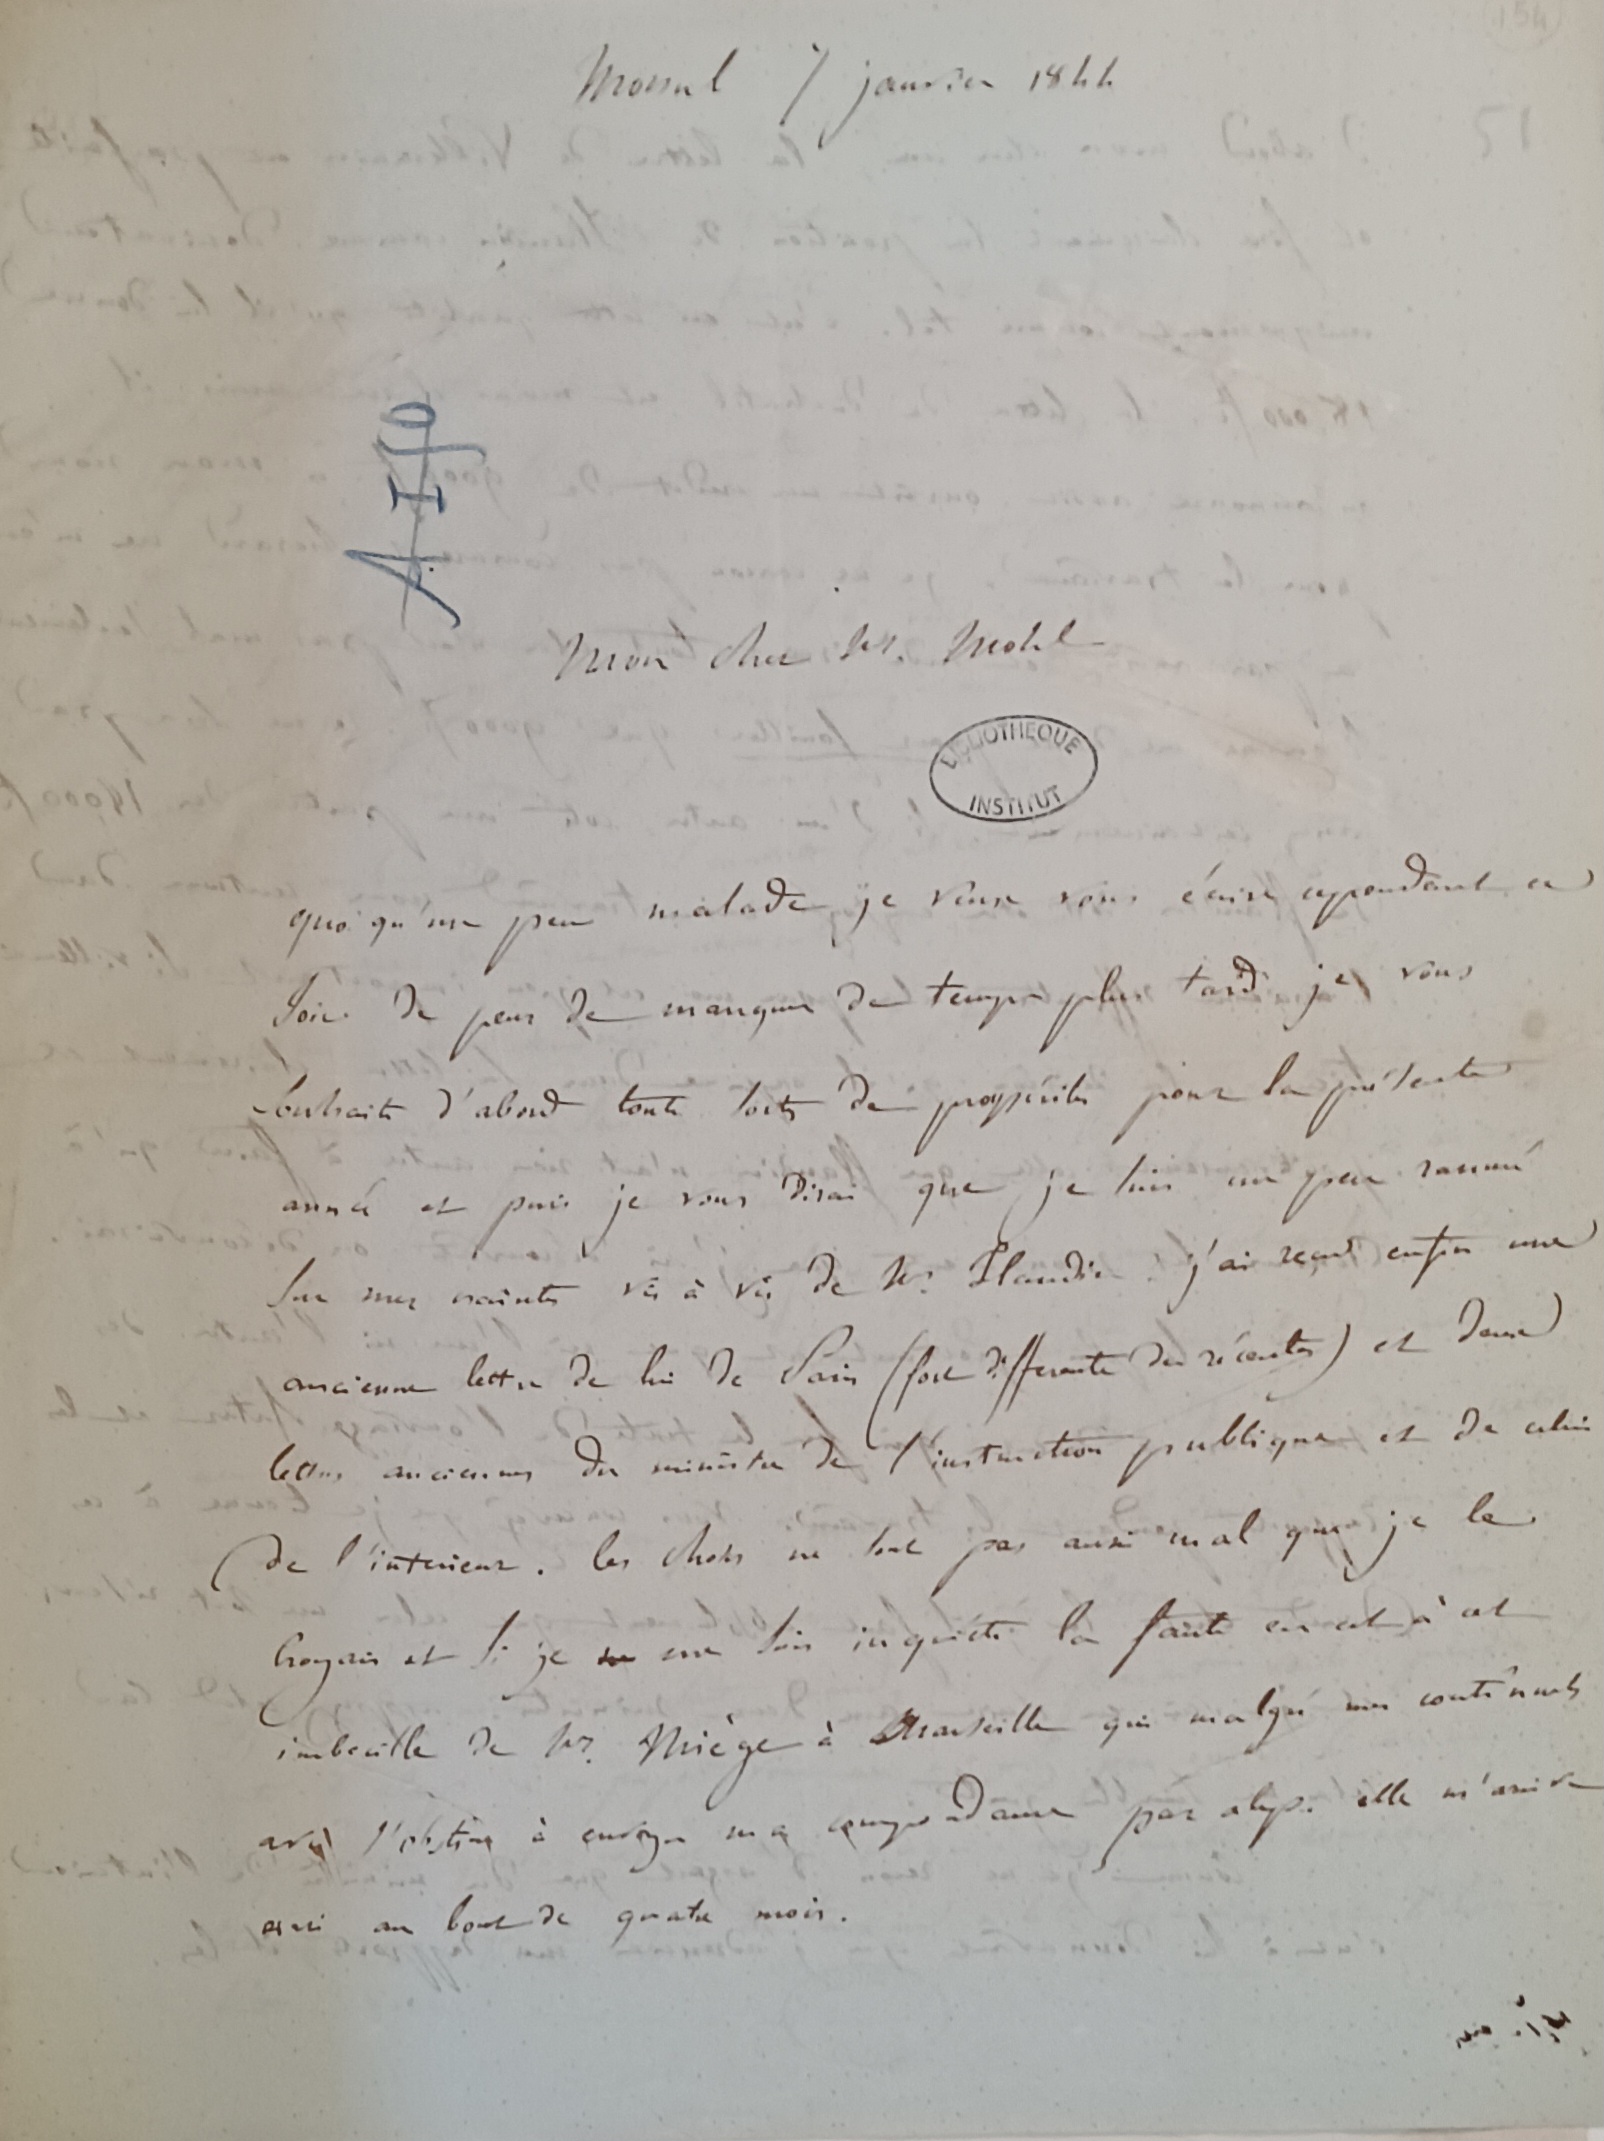 (154)
Mossul 7 janvier 1844
Mon cher Mr. Mohl
BIBLIOTHEQUE
INSTITUT
quoiqu'un peu malade je veux vous écrire cependant ce
soir de peur de manquer de temps plus tard je vous
souhaite d'abord toute sorte de prospérités pour la présente
année et puis je vous dirai que je suis un peu rassuré
sur mes craintes vis à vis de Mr. Flandin. j'ai reçu enfin une
ancienne lettre de lui de Paris (fort differente des récentes) et deux
lettres anciennes du ministre de l'instruction publique et de celui
de l'interieur. les choses ne sont pas aussi mal que je le
croyais et si je me suis inquiété la faute en est à cet
imbecille de Mr. Miège à Marseille qui malgré mes continuels
avis s'obstine à envoyer ma correspondance par alep. elle m'arrive
ainsi au bout de quatre mois.